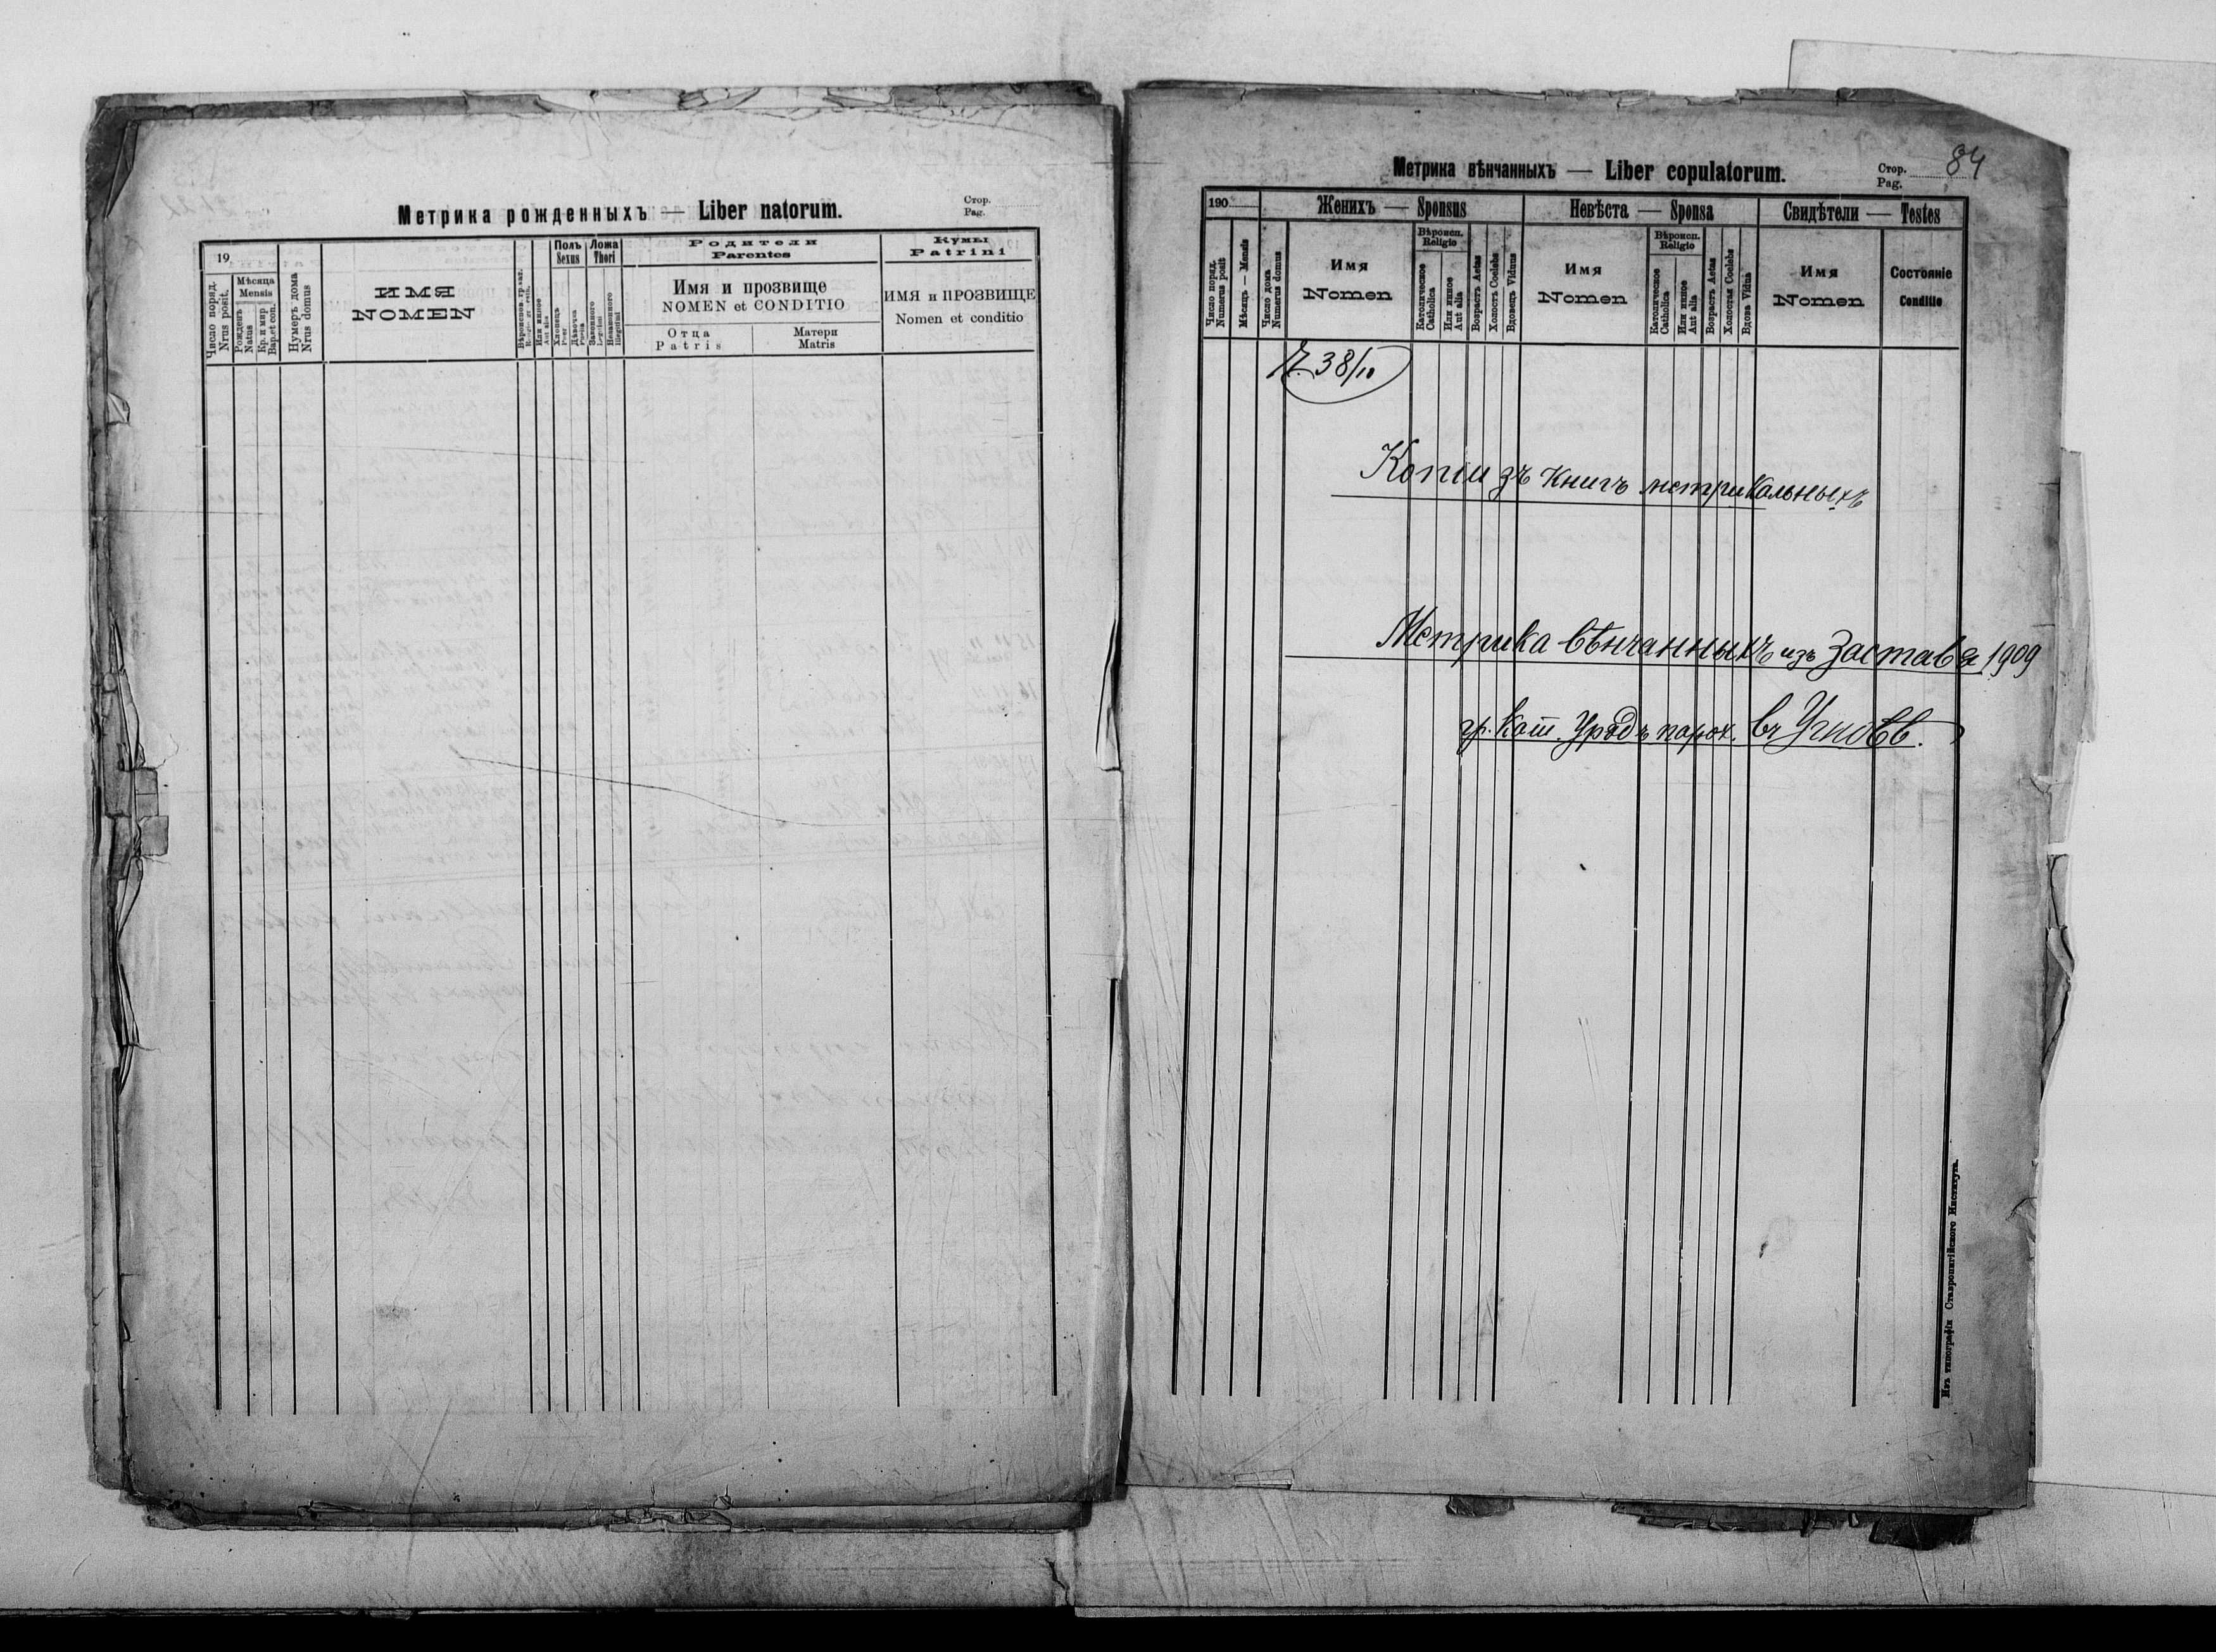 Метрика рожденныхъ — Liber natorum.
Стор.
Pag.
19
Число поряд.
Nrus posit.
Мѣсяца
Mensis
Рожденъ
Natus
Кр. и мир.
Bap. et con.
Нумеръ дома
Nrus domus
ИМЯ
NOMEN
Или иное
Aut alia
Полъ
Sexus
Хлопець
Puer
Дѣвочка
Puella
Ложа
Thori
Законного
Legitimi
Незаконного
Illegitimi
Родители
Parentes
Имя и прозвище
NOMEN et CONDITIO
Отца
Patris
Матери
Matris
Кумы
Patrini
ИМЯ и ПРОЗВИЩЕ
Nomen et conditio
Метрика вѣнчанныхъ — Liber copulatorum.
Стор.
Pag.
84
190
Число поряд.
Numerus posit
Мѣсяцъ — Mensis
Число дома
Numerus domus
Женихъ — Sponsus
Имя
Nomen
Вѣроисп.
Religio
Католическое
Catholica
Или иное
Aut alia
Возрастъ Aetas
Холостъ Coelebs
Вдовецъ Viduus
Невѣста — Sponsa
Имя
Nomen
Вѣроисп.
Religio
Католическое
Catholica
Или иное
Aut alia
Возрастъ Aetas
Холостая Coelebs
Вдова Vidua
Свидѣтели — Testes
Имя
Nomen
Состояніе
Conditio
38/10
Копіи зъ книгъ метрикальныхъ
Метрика вѣнчанныхъ изъ Заставя 1909
гр. кат. Урядъ парох. въ Угновѣ.
Изъ типографіи Ставропигійского Института.